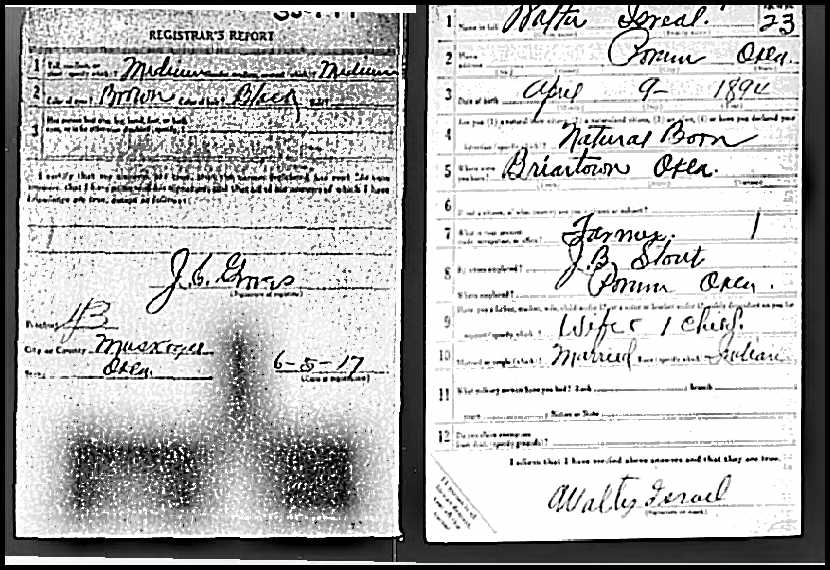 REGISTRAR'S REPORT
1 Medium Medium
2 Color of eyes? Brown Color of hair? Black
3 Has person lost arm, leg, hand, foot, or both
I certify that my answers are true, that the person registered has read his own
answers, that I have witnessed his signature, and that all of his answers of which I have
knowledge are true, except as follows:
J. C. Groves
(Signature of registrar)
Precinct 43
City or County Muskogee
Okla.
6-5-17
(Date of registration)
1 Name in full Walter Isreal. 23
2 Home address Porum Okla.
3 Date of birth April 9- 1894
4 Are you (1) a natural-born citizen, (2) a naturalized citizen, (3) an alien, (4) or have you declared your
intention (specify which)? Natural Born
5 Where were you born? Briartown Okla.
6 If not a citizen, of what country are you a citizen or subject?
7 What is your present trade, occupation, or office? Farmer. 1
8 By whom employed? J.B. Stout
Where employed? Porum Okla.
9 Have you a father, mother, wife, child under 12, or a sister or brother under 12, solely dependent on you for
support (specify which)? Wife & 1 Child.
10 Married or single (which)? Married Race (specify which)? Indian
11 What military service have you had? Rank Branch
years Nation or State
12 Do you claim exemption from draft (specify grounds)?
I affirm that I have verified above answers and that they are true.
Walter Isreal
(Signature or mark)